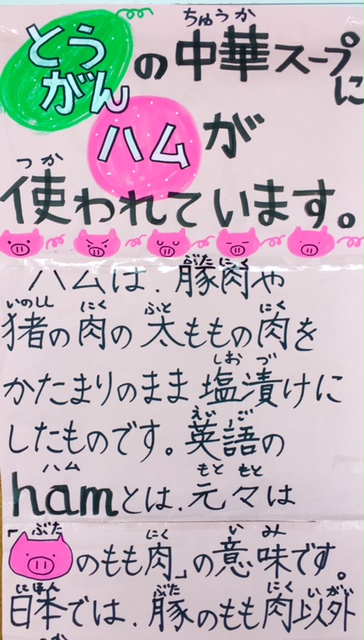 とうがんの中華スープに
ちゅうか
ハムが
使われています。
つか
ハムは、豚肉や
ぶたにく
猪の肉の太ももの肉を
いのしし にく ふと にく
かたまりのまま塩漬けに
しおづ
したものです。英語の
えいご
hamとは、元々は
ハム もともと
「のもも肉」の意味です。
ぶた にく いみ
日本では、豚のもも肉以外
にほん ぶた にく いがい